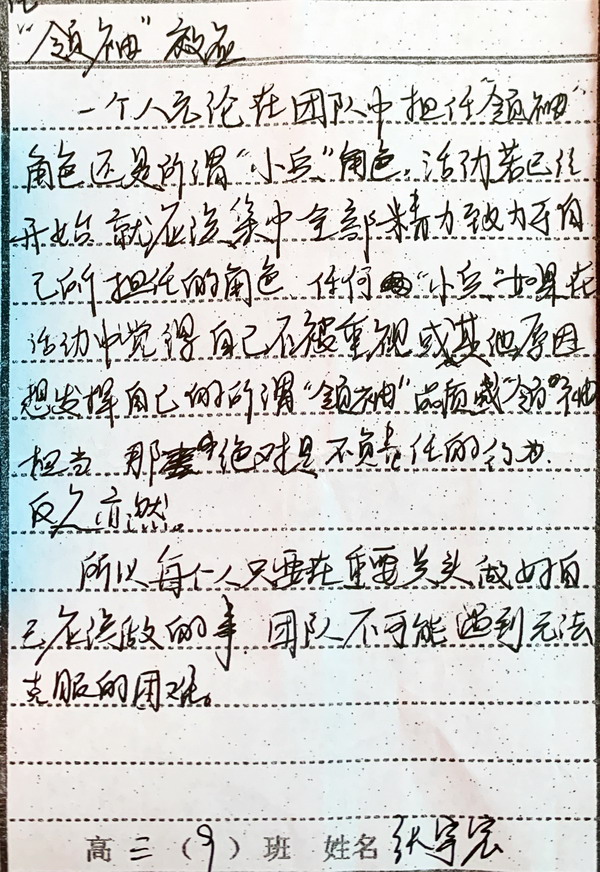 “领袖”效应
一个人无论在团队中担任“领袖”
角色还是所谓“小兵”角色，活动若已经
开始就应该集中全部精力致力于自
己所担任的角色、任何“小兵”如果在
活动中觉得自己不被重视或其他原因
想发挥自己的所谓“领袖”品质或“领”袖
担当 那绝对是不负责任的行为.
反之亦然。
所以每个人只要在重要关头做好自
己应该做的事 团队不可能遇到无法
克服的困难。
高三（9）班 姓名 张宇宏